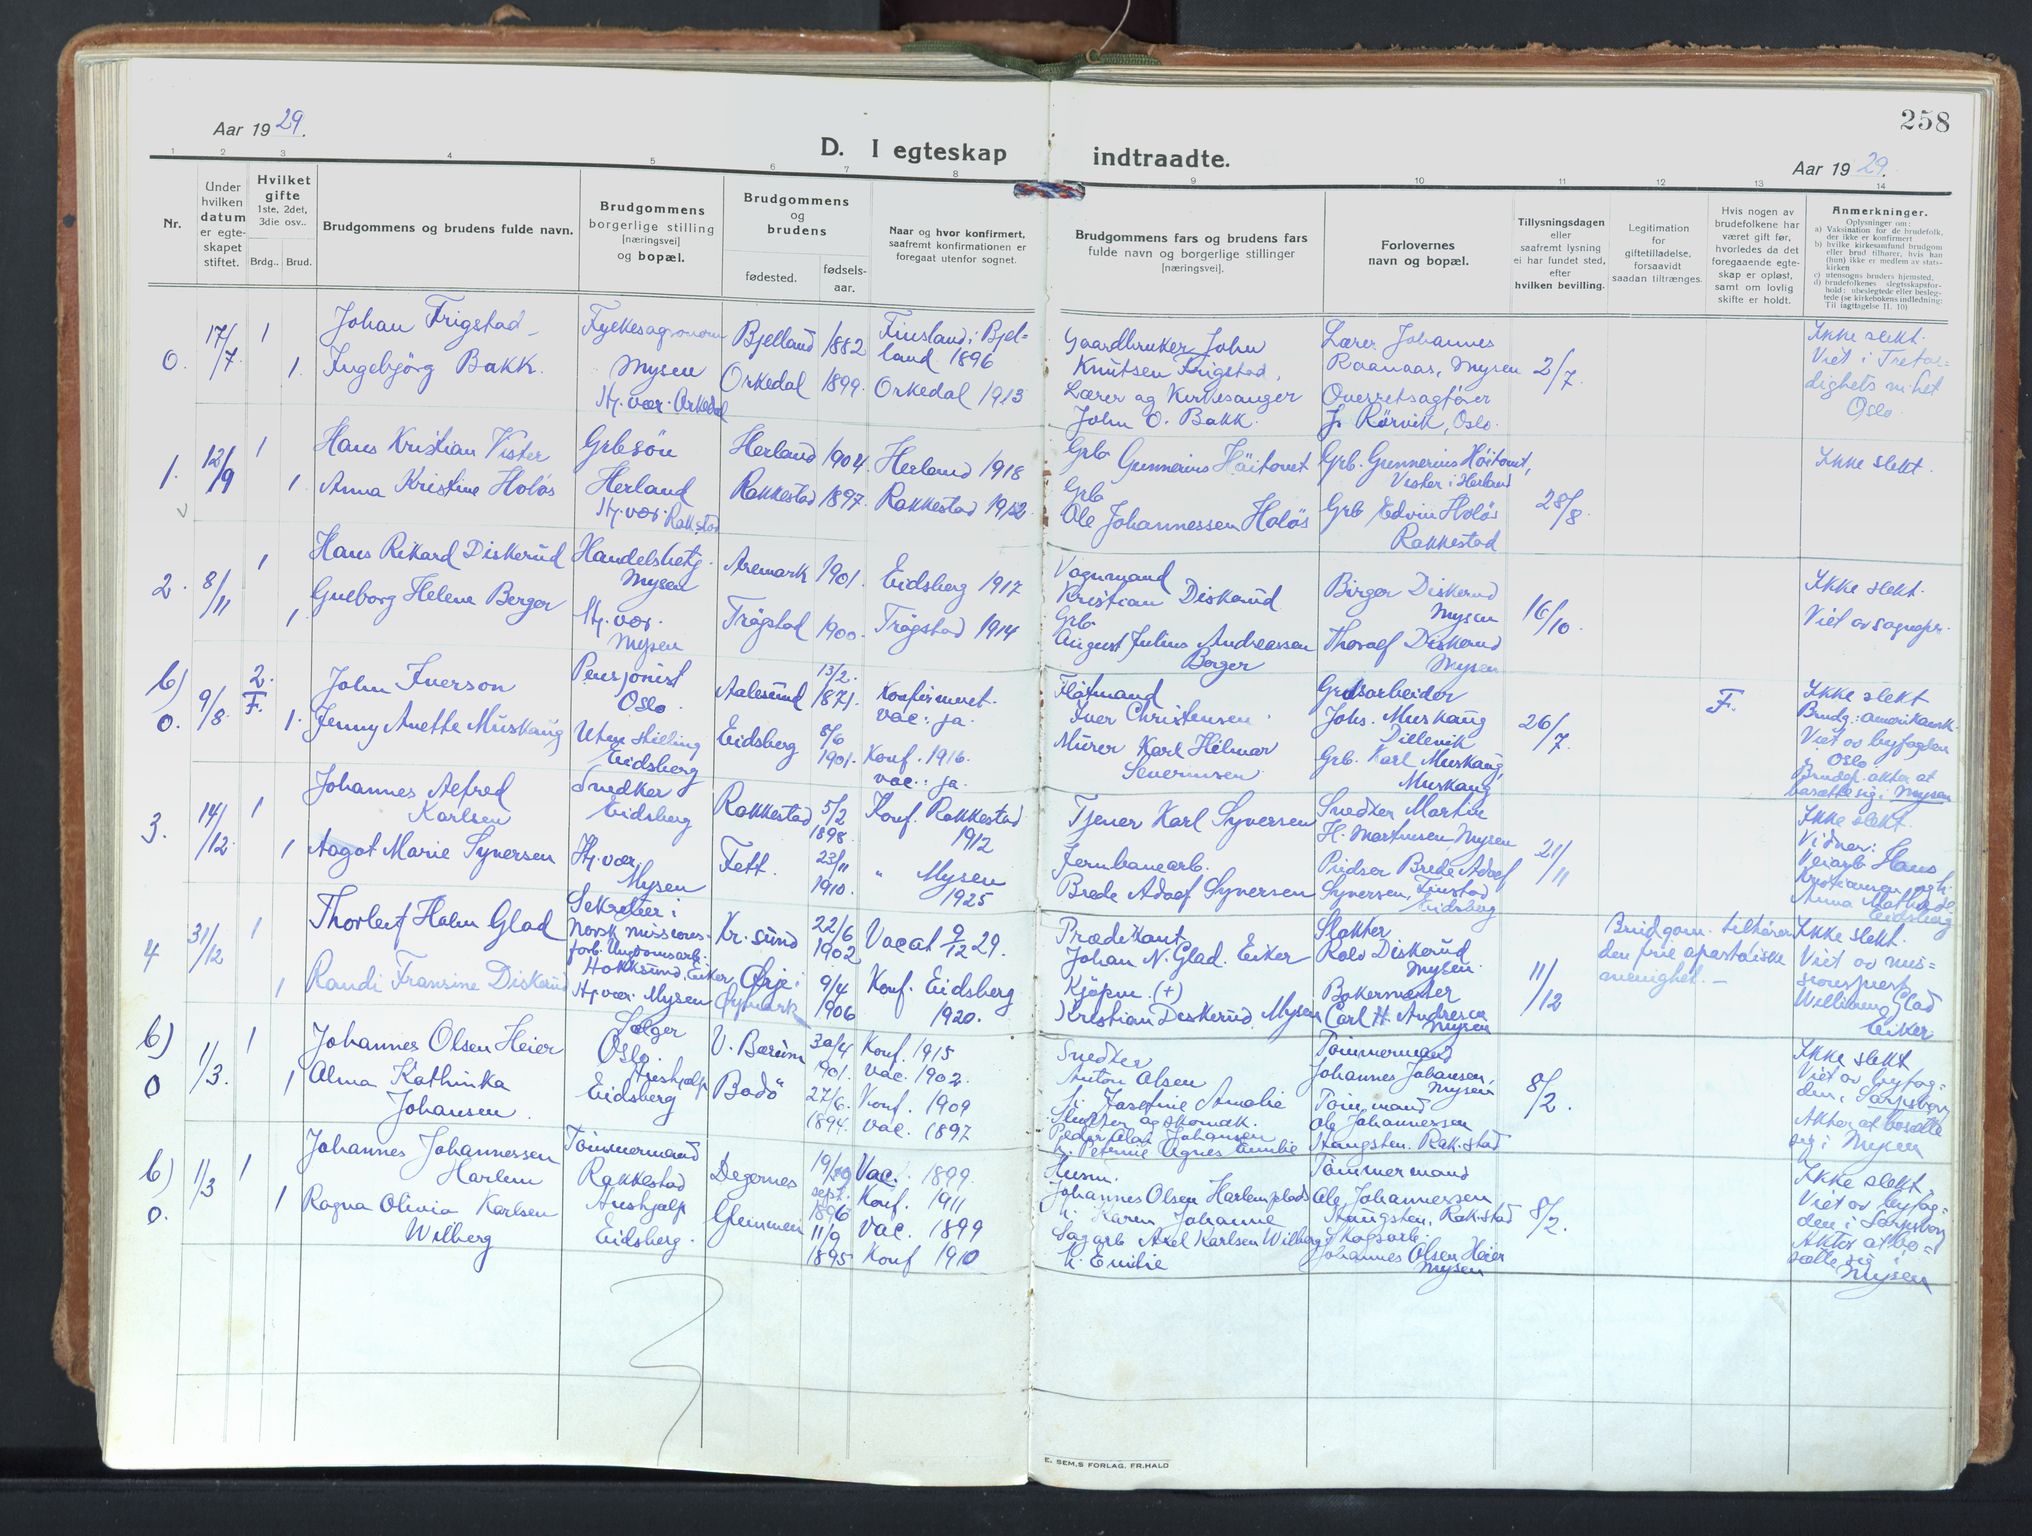 258
Aar 1929.
D. I egteskap indtraadte.
Aar 1929.
1 2 3 4 5 6 7 8 9 10 11 12 13 14
Nr.
Under hvilken datum er egteskapet stiftet.
Hvilket gifte 1ste, 2det, 3die osv..
Brdg.. Brud.
Brudgommens og brudens fulde navn.
Brudgommens borgerlige stilling [næringsvei] og bopæl.
Brudgommens og brudens
fødested. fødselsaar.
Naar og hvor konfirmert, saafremt konfirmationen er foregaat utenfor sognet.
Brudgommens fars og brudens fars fulde navn og borgerlige stillinger [næringsvei].
Forlovernes navn og bopæl.
Tillysningsdagen eller saafremt lysning ei har fundet sted, efter hvilken bevilling.
Legitimation for giftetilladelse, forsaavidt saadan tiltrænges.
Hvis nogen av brudefolkene har været gift før, hvorledes da det foregaaende egteskap er opløst, samt om lovlig skifte er holdt.
Anmerkninger.
Oplysninger om:
a) Vaksination for de brudefolk, der ikke er konfirmert
b) hvilke kirkesamfund brudgom eller brud tilhører, hvis han (hun) ikke er medlem av statskirken
c) utensogns bruders hjemsted.
d) brudefolkenes slegtsskapsforhold: ubeslegtede eller beslegtede (se kirkebokens indledning: Til iagttagelse II. 10)
0. 17/7 1 1.
Johan Frigstad
Ingebjörg Bakk.
Fylkesagronom
Mysen
Hj. vær. Orkedal
Bjelland 1882
Orkedal 1899.
Finsland i Bjelland 1896
Orkedal 1913
Gaardbruker John
Knutsen Frigstad,
Lærer og Kirkesanger
John O. Bakk.
Lærer Johannes
Raanaas, Mysen
Overretsagfører
J. Rörvik, Oslo.
2/7.
Ikke slekt.
Viet i Trefoldighets m.het
Oslo.
1. 12/9 1 1.
Hans Kristian Vister
Anna Kristine Holös
Grbsön
Herland
Hj. vær. Rak.stad
Herland 1904
Rakkestad 1897.
Herland 1918
Rakkestad 1912
Grb Gunnerius Höitomt
Grb
Ole Johannessen Holös
Grb. Gunnerius Höitomt,
Vister i Herland
Grb Edvin Holös
Rakkestad
28/8.
Ikke slekt.
2. 8/11 1 1.
Hans Rikard Diskerud
Gueborg Helene Berger
Handelsbetj.
Mysen
Hj. vær.
Mysen
Aremark 1901.
Trögstad 1900.
Eidsberg 1917
Trögstad 1914
Vognmand
Kristian Diskerud
Grb
August Julius Andreassen
Berger
Birger Diskerud
Mysen
Thoralf Diskerud
Mysen
16/10.
Ikke slekt.
Viet av sognepr.
b) 0. 9/8 2. F. 1.
John Iverson
Jenny Anette Muskaug
Pensjonist
Oslo.
Uten stilling
Eidsberg
Aalesund 13/2. 1871.
Eidsberg 8/6 1901.
Konfirmeret.
vac: ja.
Konf. 1916.
vac.: ja.
Flötmand
Iver Christensen.
Murer Karl Hilmar
Severinsen
Grdsarbeider
Johs. Muskaug
Dillevik
Grb. Karl Muskaug,
Muskaug
26/7.
F.
Ikke slekt
Brudg: amerikansk.
Viet av byfogden
i Oslo
Brudep. akter at
bosætte sig i Mysen
3. 14/12. 1 1
Johannes Alfred
Karlsen
Aagot Marie Syversen
Snedker
Eidsberg
Hj. vær.
Mysen
Rakkestad 5/2 1898.
Fett. 23/11 1910.
Konf. Rakkestad
1912
" Mysen
1925
Tjener Karl Syversen
Jernbanearb.
Brede Adolf Syversen
Snedker Martin
H. Martinsen, Mysen
Pudser Brede Adolf
Syversen, Finstad
Eidsberg
21/11
Ikke slekt.
Vidner:
Veiarb Hans
Kristiansen og h.
Anna Mathilde
Eidsberg
4 31/12 1 1
Thorleif Holm Glad
Randi Fransine Diskerud
Sekretær i
Norsk missions-
forb. Ungdomsarb.
Hokksund, Eiker
Hj. vær. Mysen
Kr. sund 22/6 1902
Örje i
Öymark 9/4 1906
Vacat 9/12 29.
Konf. Eidsberg
1920.
Prædikant
Johan N. Glad. Eiker
Kjöpm. (+)
Kristian Diskerud, Mysen
Slakter
Rolv Diskerud
Mysen.
Bakermester
Carl H. Andresen
Mysen
11/12
Brudgom. tilhörer
den frie apostoliske
menighet. –
Ikke slekt.
Viet av mis=
sionsprest
William Glad
Eiker
b) 0 1/3. 1 1
Johannes Olsen Heier
Alma Kathinka
Johansen.
Sælger
Oslo.
Hushjelp
Eidsberg
V. Bærum 30/4 1901.
Bodö 27/6. 1894.
Konf. 1915
vac. 1902.
Konf. 1909
vac. 1897
Snedker
Anton Olsen
h. Josefine Amalie
og skomak.
Peder Olai Johansen
h. Peternie Agnes Emilie
Tömmermand
Johannes Johansen,
Mysen
Töm. mand
Ole Johannessen
Stangsten. Rak.stad
8/2.
Ikke slekt
Viet av byfog=
den i Sarpsborg
Akter at bosætte
sig i Mysen
b) 0. 1/3 1 1
Johannes Johannessen
Harlem
Ragna Olivia Karlsen
Wilberg
Tömmermand
Rakkestad
Hushjelp
Eidsberg.
Degernes 19/ sept. 1896
Glemmen 11/9 1895
Vac. 1899.
Konf. 1911
Vac. 1899
Konf 1910
Husm.
Johannes Olsen Harlemplads
h. Karen Johanne
Sagarb Axel Karlsen Wilberg
h. Emilie
Tömmermand
Ole Johannessen
Stangsten, Rak.stad
Skogsarb.
Johannes Olsen Heier
Mysen
8/2.
Ikke slekt.
Viet av byfog=
den i Sarpsborg
Akter at bo=
sætte sig i
Mysen
E. SEM,S FORLAG, FR.HALD